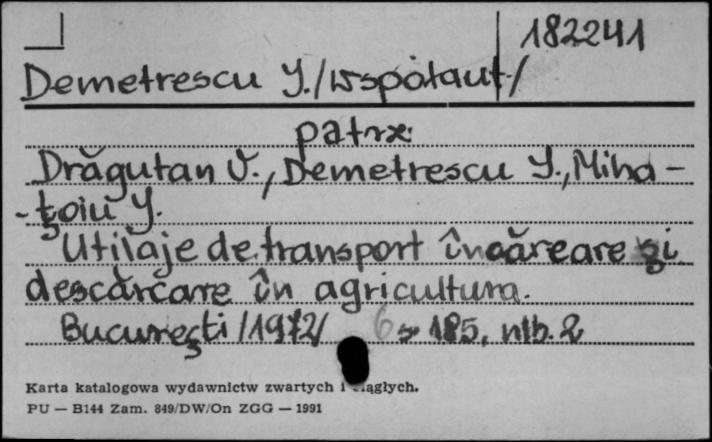 182241
Demetrescu Y./współaut/
patrz:
Drăguţan V., Demetrescu Y., Miha-
-ţoiu Y.
Utilaje de transport încăreare şi
descărcare în agricultura.
Bucureşti /1972/ s. 185, nlb. 2
Karta katalogowa wydawnictw zwartych i ciągłych.
PU — B144 Zam. 849/DW/On ZGG — 1991